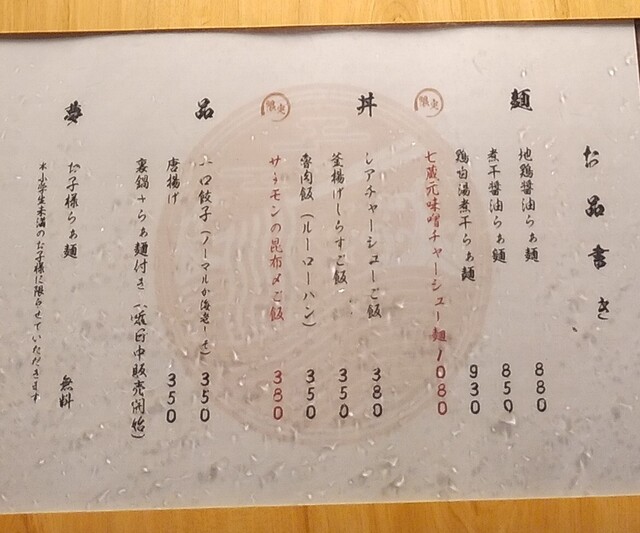 お品書き
麺
地鶏醤油らぁ麺 880
煮干醤油らぁ麺 850
鶏白湯煮干らぁ麺 930
限定
七蔵元味噌チャーシュー麺 1080
丼
レアチャーシューご飯 380
釜揚げしらすご飯 350
魯肉飯(ルーローハン) 350
限定
サーモンの昆布〆ご飯 380
品
一口餃子(ノーマルか海老しそ) 350
唐揚げ 350
裏鍋+らぁ麺付き
夢
お子様らぁ麺 無料
小学生未満のお子様に限らせていただきます